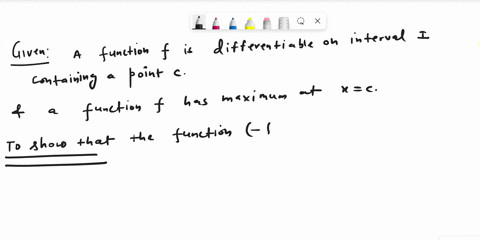 Given: A function f is differentiable on interval I
containing a point c.
& a function f has maximum at x=c.
To show that the function (-f